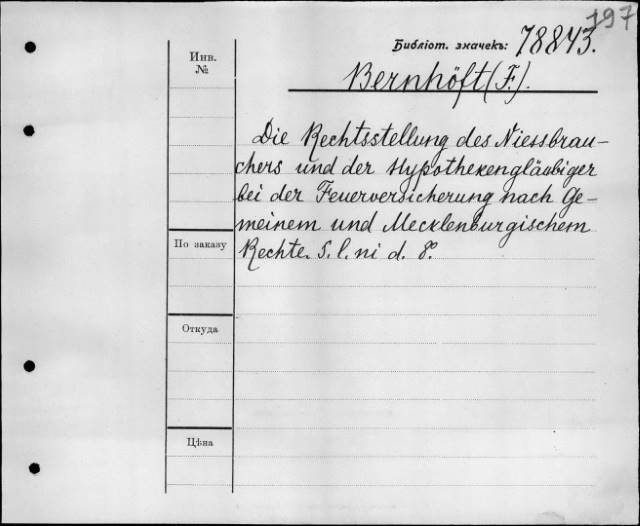 197
Библіот. значекъ: 78843.
Инв.
№
Bernhöft (F.).
Die Rechtsstellung des Niessbrau-
chers und der Hypothekengläubiger
bei der Feuerversicherung nach Ge-
meinem und Mecklenburgischem
Rechte. S. l. ni d. 8º.
По заказу
Откуда
Цѣна